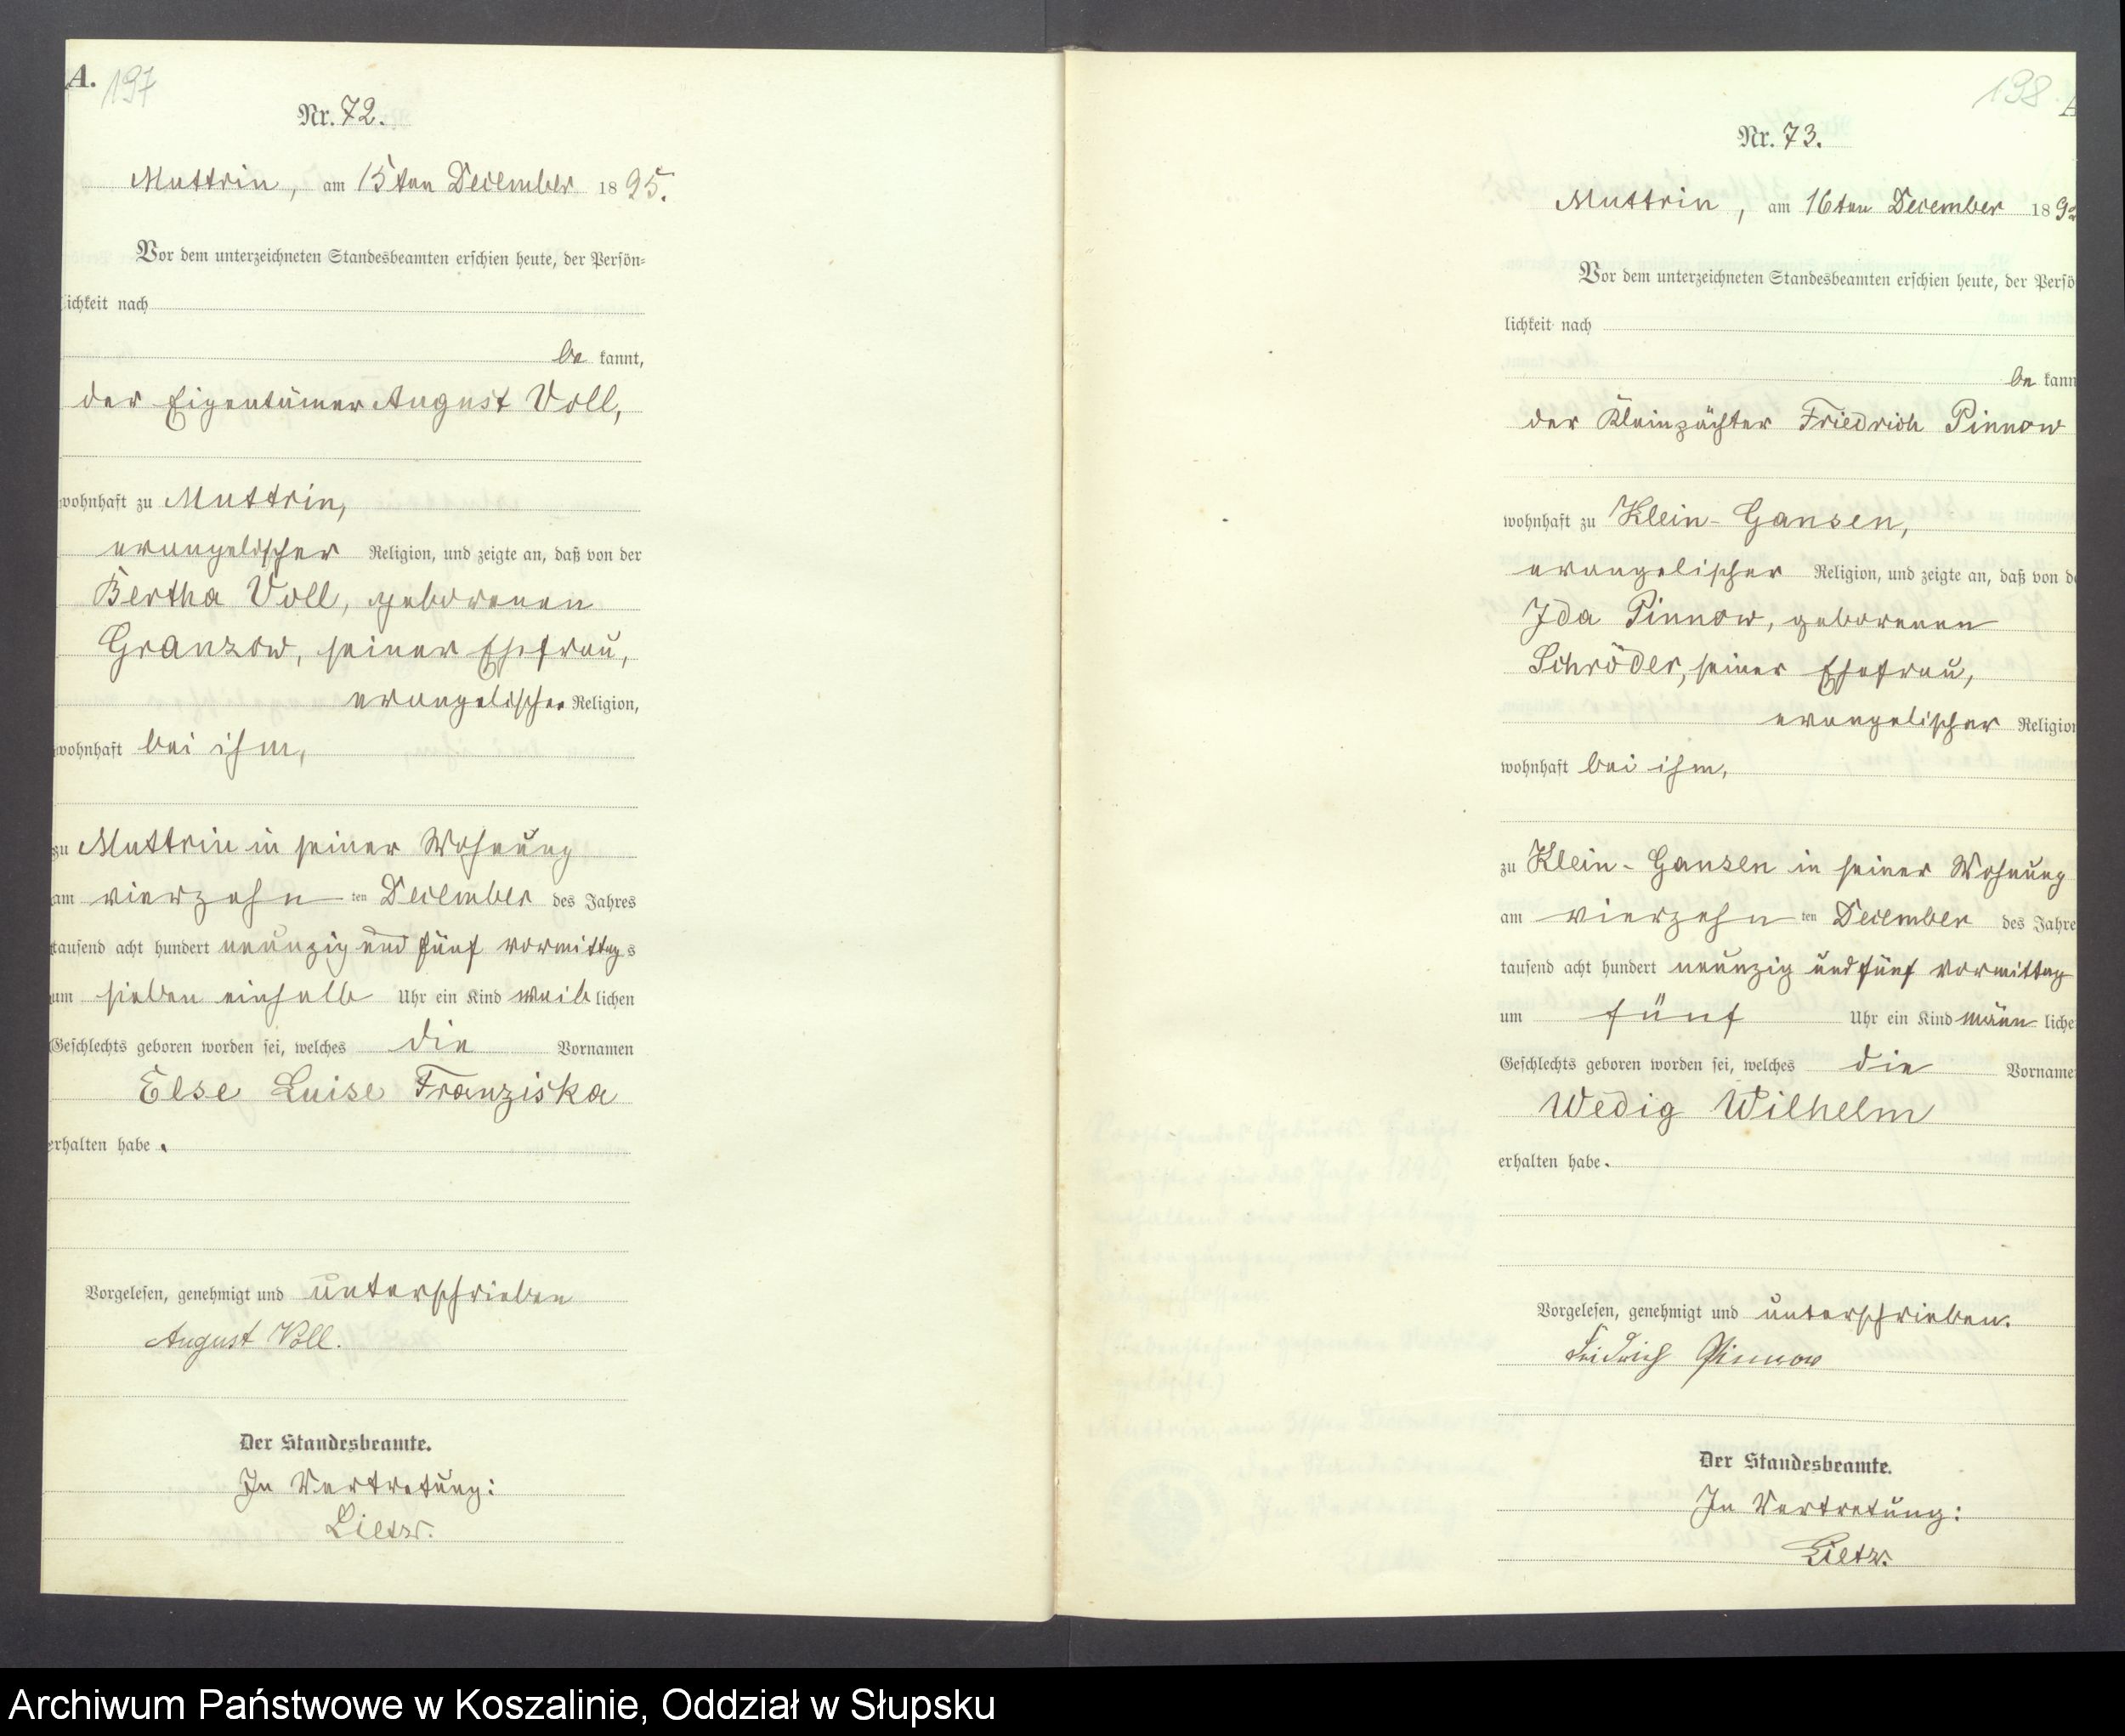 A. 197
Nr. 72.
Muttrin, am 15ten December 1895.
Vor dem unterzeichneten Standesbeamten erschien heute, der Persön=
lichkeit nach
be kannt,
der Eigentümer August Voll,
wohnhaft zu Muttrin,
evangelischer Religion, und zeigte an, daß von der
Bertha Voll, geborenen
Granzow, seiner Ehefrau,
evangelischer Religion,
wohnhaft bei ihm,
zu Muttrin in seiner Wohnung
am vierzehn ten December des Jahres
tausend acht hundert neunzig und fünf vormittags
um sieben einhalb Uhr ein Kind weiblichen
Geschlechts geboren worden sei, welches die Vornamen
Else Luise Franziska
erhalten habe.
Vorgelesen, genehmigt und unterschrieben
August Voll.
Der Standesbeamte.
In Vertretung:
Lietz.
198. A
Nr. 73.
Muttrin, am 16ten December 189
Vor dem unterzeichneten Standesbeamten erschien heute, der Persö
lichkeit nach
be kann
der Kleinpächter Friedrich Pinnow
wohnhaft zu Klein-Gansen,
evangelischer Religion, und zeigte an, daß von de
Ida Pinnow, geborenen
Schröder, seiner Ehefrau,
evangelischer Religion
wohnhaft bei ihm,
zu Klein-Gansen in seiner Wohnung
am vierzehn ten December des Jahre
tausend acht hundert neunzig und fünf vormittag
um fünf Uhr ein Kind männ liche
Geschlechts geboren worden sei, welches die Vorname
Wedig Wilhelm
erhalten habe.
Vorgelesen, genehmigt und unterschrieben.
Fridrich Pinnow
Der Standesbeamte.
In Vertretung:
Lietz.
Archiwum Państwowe w Koszalinie, Oddział w Słupsku